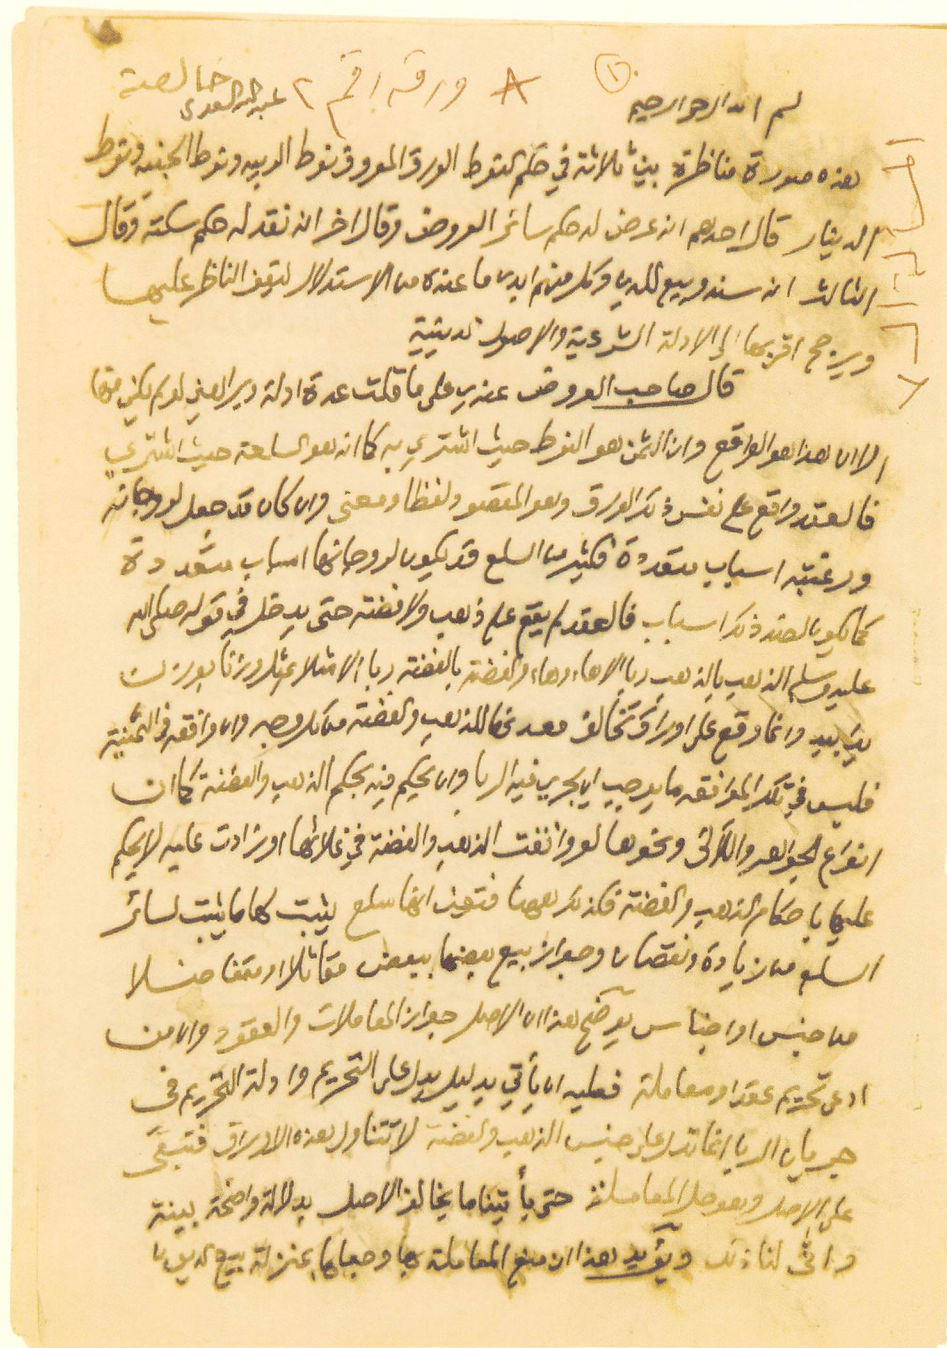 ورقة رقم ٢
بسم الله الرحمن الرحيم
هذه صورة مناظرة بين ثلاثة في حكم النوط الورق المعروف نوط الربيه ونوط الجنيه ونوط
الدينار قال احدهم انه عرض له حكم سائر العروض وقال اخر انه نقد له حكم سكته وقال
الثالث انه سند وبيع للدين وكل منهم ابدى ما عنده من الاستدلال ليقف الناظر عليها
ويرجح اقربها إلى الادلة الشرعية والاصول الدينية
قال صاحب العروض عندي على ما قلت عدة ادلة وبراهين لو لم يكن منها
الا ان هذا هو الواقع وان الثمن هو النوط حيث اشتري به كما انه هو السلعة حيث اشتري
فالعقد واقع على نفس ذلك الورق وهو المقصود لفظا ومعنى وان كان قد جعل لروجانه
ورغبته اسباب متعددة فكثير من السلع قد يكون لروجانها اسباب متعددة
كما يكون لضد ذلك اسباب فالعقد لم يقع على ذهب ولا فضة حتى يدخل في قوله صلى الله
عليه وسلم الذهب بالذهب ربا الا هاء وهاء والفضة بالفضة ربا الا مثلا بمثل وزنا بوزن
يدا بيد وانما وقع على اوراق تخالف معدنها للذهب والفضة من كل وجه وان وافقه في الثمنية
فليس في تلك الموافقه ما يوجب ان يجري فيه الربا وان يحكم فيه بحكم الذهب والفضة كما ان
انواع الجواهر واللآلئ ونحوها لو وافقت الذهب والفضة في غلائها او زادت عليه لا يحكم
عليها باحكام الذهب والفضة فكذلك هنا فتعين انها سلع يثبت لها ما يثبت لسائر
السلع من زيادة ونقصان وجواز بيع بعضها ببعض متماثلا او متفاضلا
من جنس او اجناس يوضح هذا ان الاصل جواز المعاملات والعقود وان من
ادعى تحريم عقد او معاملة فعليه ان يأتي بدليل يدل على التحريم وادلة التحريم في
جريان الربا انما تدل على جنس الذهب والفضة لا تتناول هذه الاوراق فتبقى
على الاصل وهو حل المعاملة حتى يأتينا ما يخالف الاصل بدلالة واضحة بينة
وانى لنا ذلك ويؤيد هذا ان منع المعاملة بها وجعلها بمنزلة بيع الديون